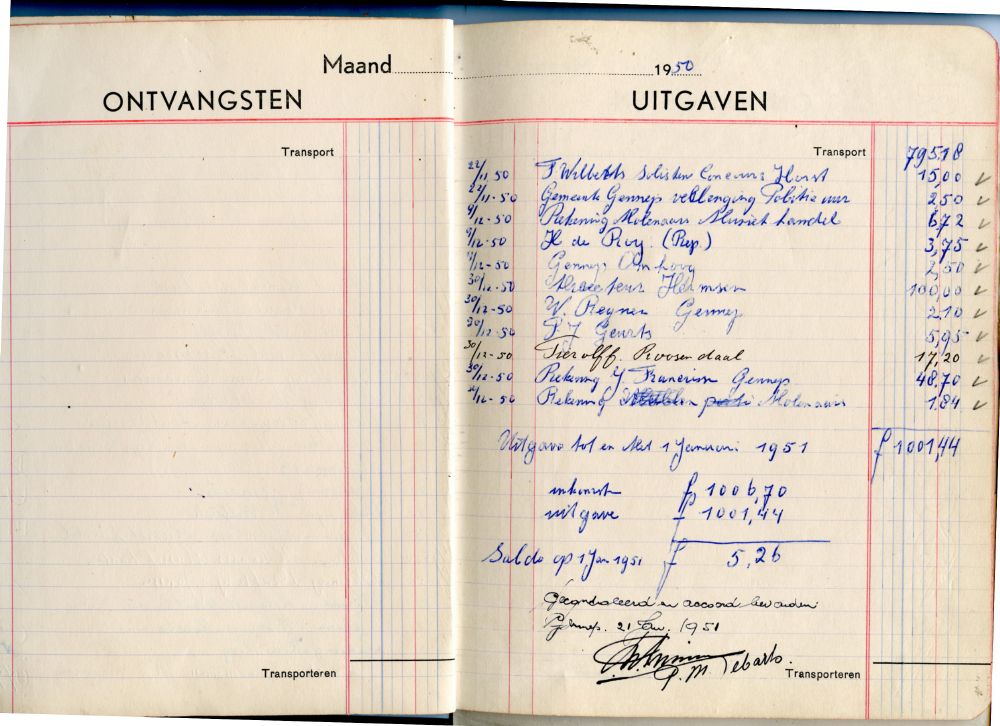 Maand
ONTVANGSTEN
Transport
Transporteren
1950
UITGAVEN
Transport 795,18
22/11 50 Solisten Concours Horst 15,00 ✓
22/11-50 Gemeente Gennep Politie uur 2,50 ✓
9/12-50 Rekening Molenaars Muziek handel 6,72 ✓
9/12-50 H de Roy. (Rep.) 3,75 ✓
12-50 Gennep Omhoog 2,50 ✓
30/12-50 Directeur Hermsen 100,00 ✓
30/12-50 W. Reynen Gennep 2,10 ✓
30/12-50 P J Geurts 5,95 ✓
30/12-50 Tierolff. Roosendaal 17,20 ✓
30/12-50 Rekening Y Francissen Gennep 48,70 ✓
12-50 Rekening Molenaars 1,84 ✓
Uitgave tot en Met 1 Januari 1951 f 1001,44
inkomst f 1006,70
uitgave f 1001,44
Saldo op 1 Jan 1951 f 5,26
Gecontroleerd en accoord bevonden
Gennep. 21 Jan. 1951
P. M. Tebarts.
Transporteren